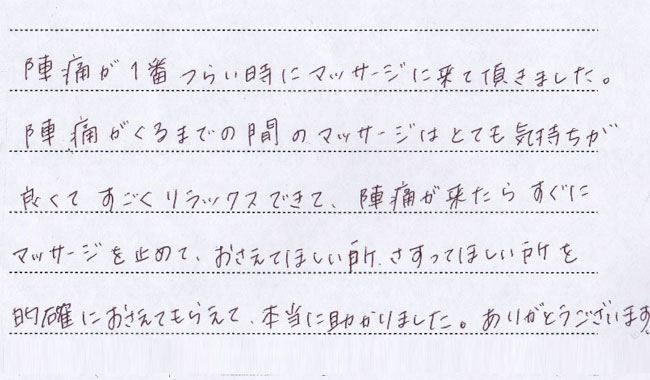 陣痛が1番つらい時にマッサージに来て頂きました。
陣痛がくるまでの間のマッサージはとても気持ちが
良くてすごくリラックスできて、陣痛が来たらすぐに
マッサージを止めて、おさえてほしい所、さすってほしい所を
的確におさえてもらえて、本当に助かりました。ありがとうございます